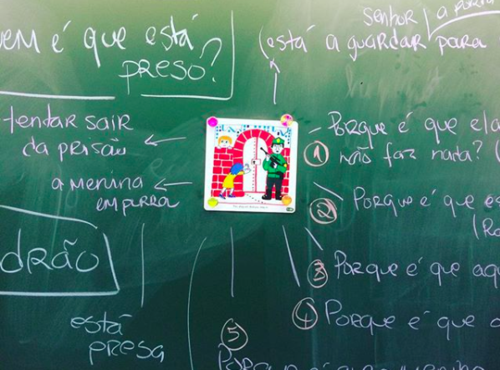 em é que está
preso?
senhor
(está a guardar para
tentar sair
da prisão
a menina
empurra
drão
está
presa
Porque é que ela
1 não faz nada? (
2 Porque é que es
3 Porque é que aqu
4 Porque é que o
5
Porque é